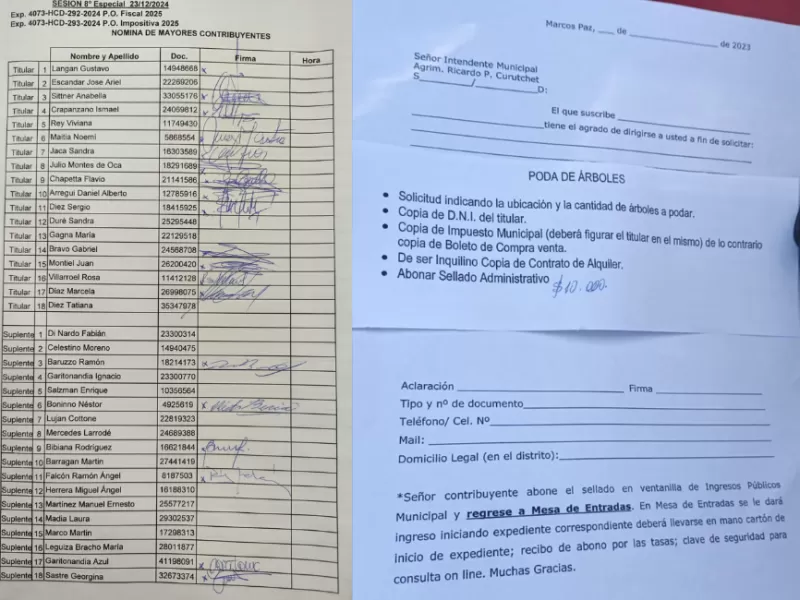 SESION 8° Especial 23/12/2024
Exp. 4073-HCD-292-2024 P.O. Fiscal 2025
Exp. 4073-HCD-293-2024 P.O. Impositiva 2025
NOMINA DE MAYORES CONTRIBUYENTES
Nombre y Apellido Doc. Firma Hora
Titular 1 Langan Gustavo 14948668
Titular 2 Escandar Jose Ariel 22269206
Titular 3 Sittner Anabella 33055176
Titular 4 Crapanzano Ismael 24059812
Titular 5 Rey Viviana 11749430
Titular 6 Maitia Noemi 5868554
Titular 7 Jaca Sandra 16303589
Titular 8 Julio Montes de Oca 18291689
Titular 9 Chapetta Flavio 21141586
Titular 10 Arregui Daniel Alberto 12785916
Titular 11 Diez Sergio 18415925
Titular 12 Duré Sandra 25295448
Titular 13 Gagna María 22129518
Titular 14 Bravo Gabriel 24588708
Titular 15 Montiel Juan 26200420
Titular 16 Villarroel Rosa 11412128
Titular 17 Díaz Marcela 26998075
Titular 18 Diez Tatiana 35347978
Suplente 1 Di Nardo Fabián 23300314
Suplente 2 Celestino Moreno 14940475
Suplente 3 Baruzzo Ramón 18214173
Suplente 4 Garitonandia Ignacio 23300770
Suplente 5 Salzman Enrique 10350564
Suplente 6 Boninno Néstor 4925619
Suplente 7 Lujan Cottone 22819323
Suplente 8 Mercedes Larrodé 24689388
Suplente 9 Bibiana Rodríguez 16621844
Suplente 10 Barragan Martin 27441419
Suplente 11 Falcón Ramón Ángel 8187503
Suplente 12 Herrera Miguel Ángel 16188310
Suplente 13 Martínez Manuel Ernesto 25577217
Suplente 14 Madia Laura 29302537
Suplente 15 Marco Martin 17298313
Suplente 16 Leguiza Bracho María 28011877
Suplente 17 Garitonandia Azul 41198091
Suplente 18 Sastre Georgina 32673374
Marcos Paz, ___ de ____________ de 2023
Señor Intendente Municipal
Agrim. Ricardo P. Curutchet
S________/__________D:
El que suscribe ____________
____________tiene el agrado de dirigirse a usted a fin de solicitar:
PODA DE ÁRBOLES
• Solicitud indicando la ubicación y la cantidad de árboles a podar.
• Copia de D.N.I. del titular.
• Copia de Impuesto Municipal (deberá figurar el titular en el mismo) de lo contrario
copia de Boleto de Compra venta.
• De ser Inquilino Copia de Contrato de Alquiler.
• Abonar Sellado Administrativo $10.000.
Aclaración ____________ Firma ____________
Tipo y nº de documento____________
Teléfono/ Cel. Nº____________
Mail: ____________
Domicilio Legal (en el distrito):____________
*Señor contribuyente abone el sellado en ventanilla de Ingresos Públicos
Municipal y regrese a Mesa de Entradas. En Mesa de Entradas se le dará
ingreso iniciando expediente correspondiente deberá llevarse en mano cartón de
inicio de expediente; recibo de abono por las tasas; clave de seguridad para
consulta on line. Muchas Gracias.